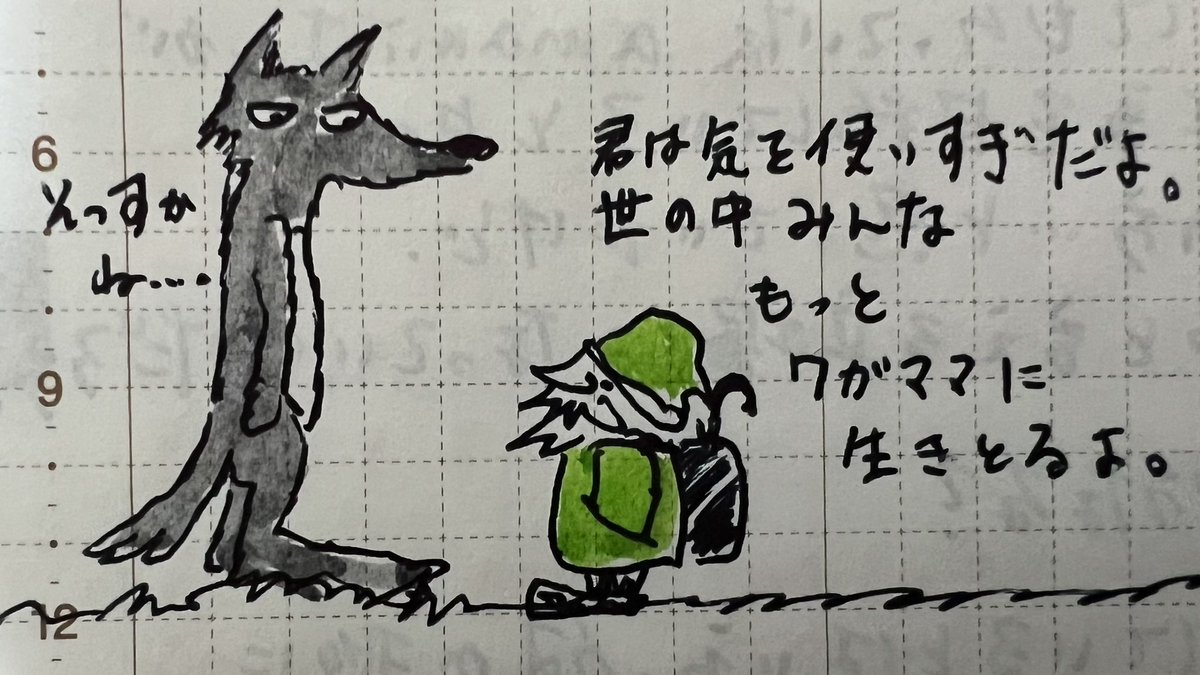 君は気を使いすぎだよ。
世の中みんな
もっと
ワガママに
生きとるよ。
6
そっすか
ね…
9
12